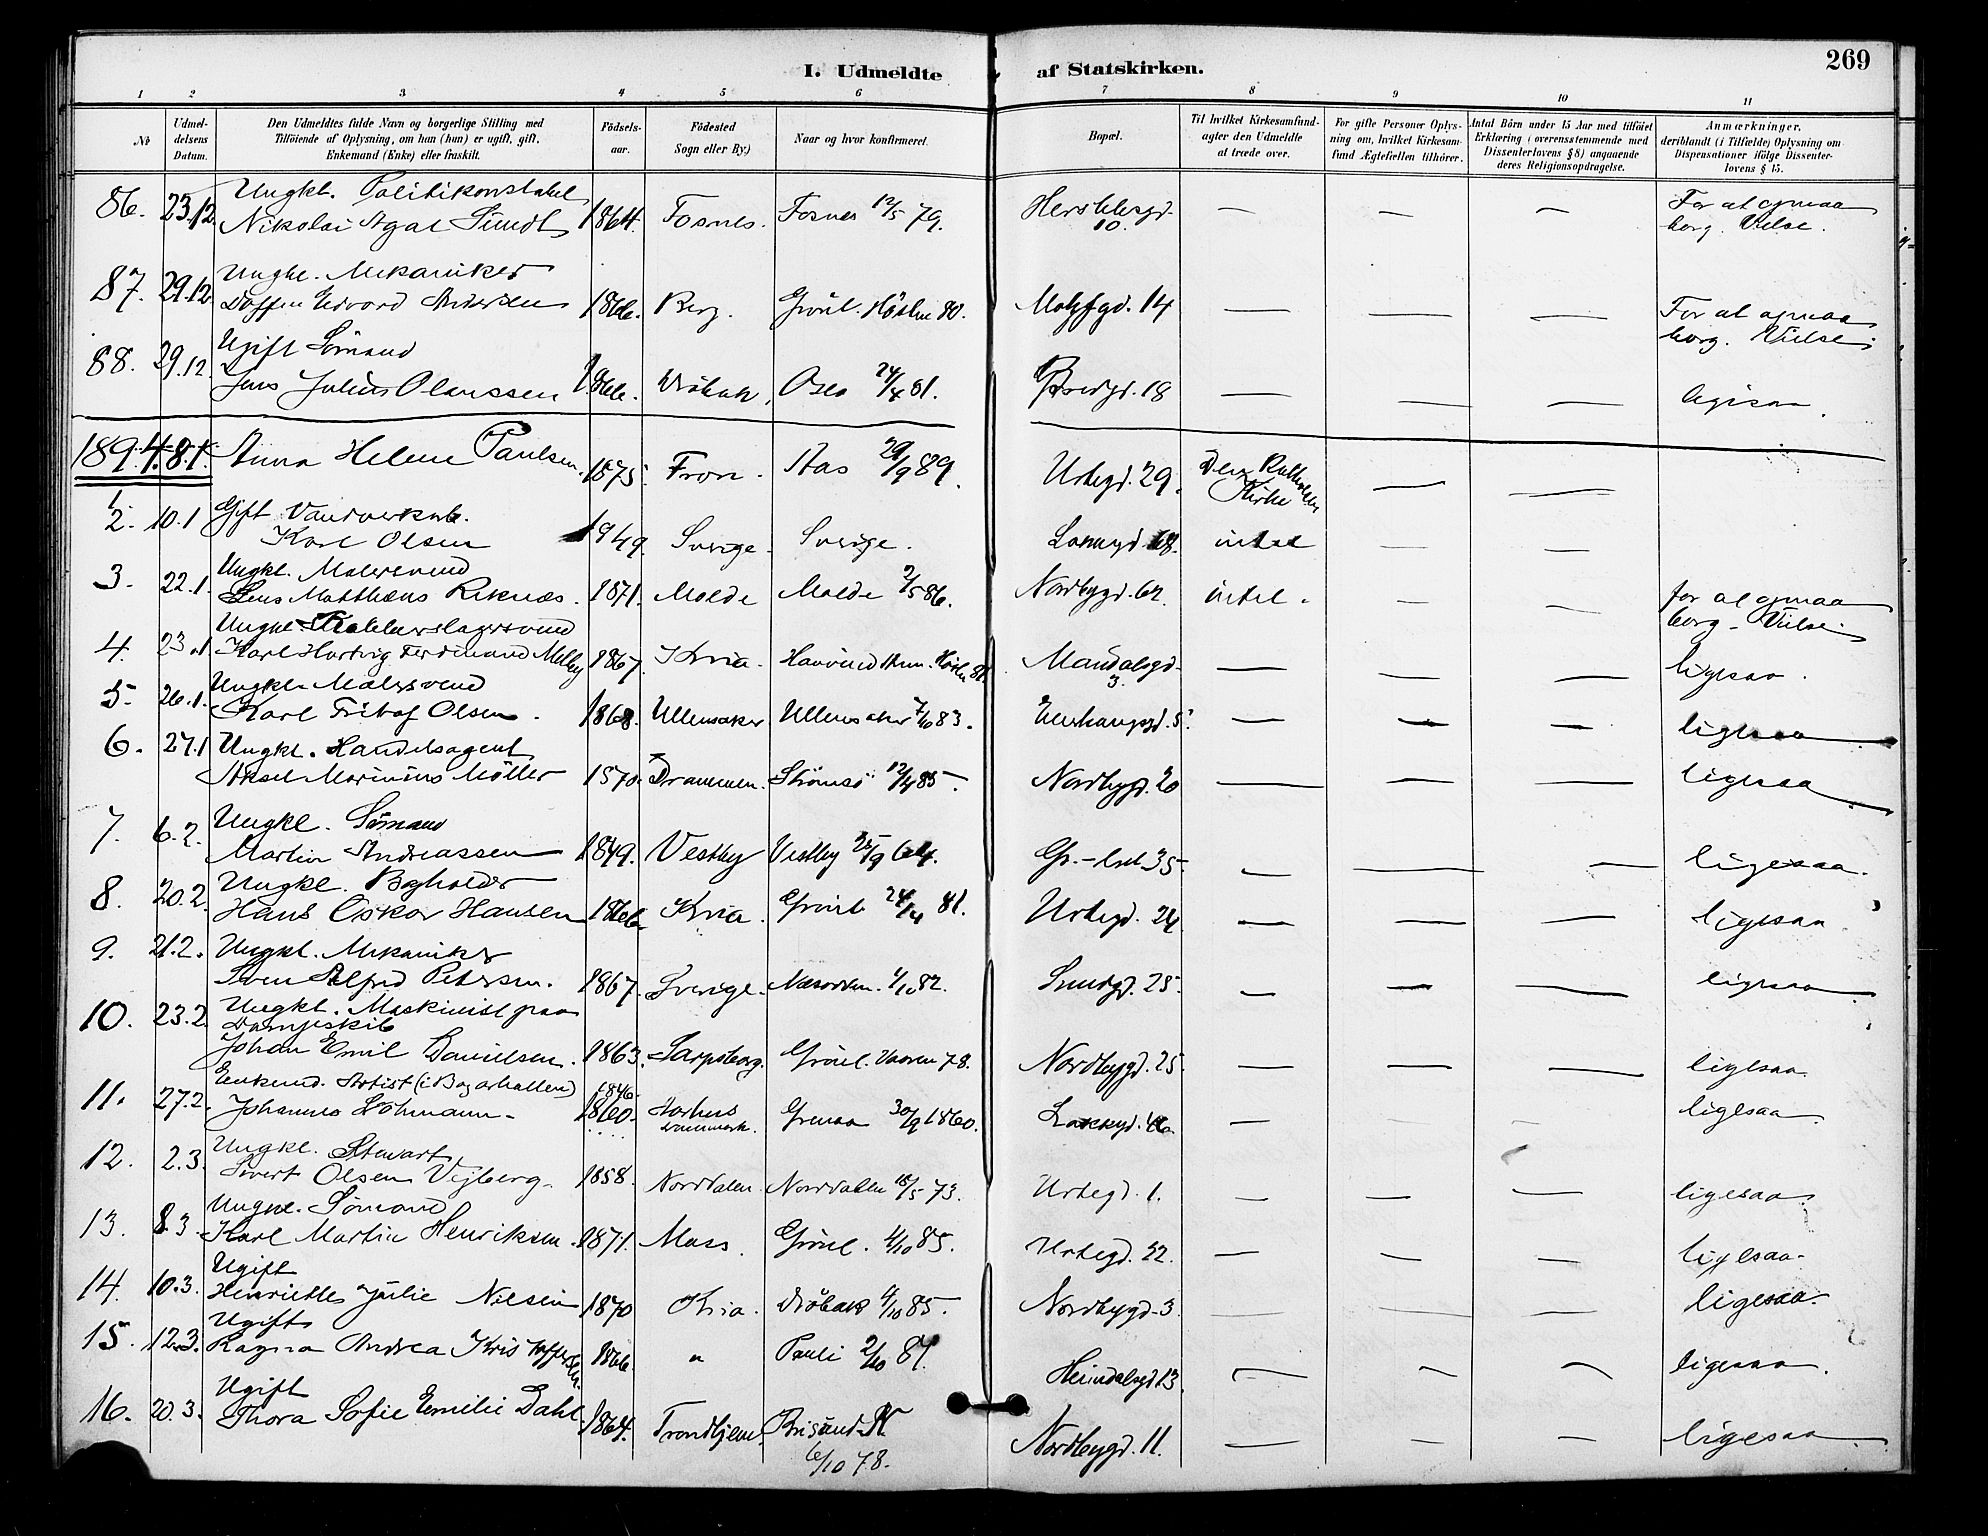 I. Udmeldte af Statskirken.
269
1 2 3 4 5 6 7 8 9 10 11
No
Udmeldelsens Datum.
Den Udmeldtes fulde Navn og borgerlige Stilling med Tilföiende af Oplysning, om han (hun) er ugift, gift, Enkemand (Enke) eller fraskilt.
Födselsaar.
Födested Sogn eller By.)
Naar og hvor konfirmeret.
Bopæl.
Til hvilket Kirkesamfund agter den Udmeldte at træde over.
For gifte Personer Oplysning om, hvilket Kirkesamfund Ægtefællen tilhörer.
Antal Börn under 15 Aar med tilföiet Erklæring (overensstemmende med Dissenterlovens § 8) angaaende deres Religionsopdragelse.
Anmærkninger, deriblandt (i Tilfælde) Oplysning om Dispensationer ifölge Dissenterlovens § 15.
86. 23.12. Ungkl. Politikonstabel
Nikolai Agat Sundt 1864. Fosnes. Fosnes 12/5 79. Herslebsgd. 10. — — — For at opnaa borg. Vielse.
87. 29.12. Ungkl. Mekaniker
Edvard Andersen 1866. Berg. Grönl. Hösten 80. Motzfgd. 14 — — — For at opnaa borg. Vielse.
88. 29.12 Ugift Sömand
Jens Julius Olaussen 1866. Dröbak, Oslo 24/4 81. Bredgd. 18 — — — ligesaa.
1894. 8.1. Anna Helene Paulsen. 1875. Fron. Aas 29/9 89. Urtegd. 29. Den Katholske Kirke — —
1.
2. 10.1 Gift
Karl Olsen 1949. Sverige. Sverige. 18. intet — —
3. 22.1. Ungkl. Malersvend
Jens Matthæus Reknæs. 1871. Molde Molde 2/5 86. Nordbygd. 62. intet. — — for at opnaa borg. Vielse.
4. 23.1 Ungkl. Kobberslagersvend
Karl Hartvig Ferdinand Melby 1867. Kria. Høst 81. Mandalsgd. 3. — — — ligesaa.
5. 26.1. Ungkl. Malersvend
Karl Fritjof Olsen. 1868. Ullensaker Ullensaker 7/10 83. Enerhaugsgd. 5. — — — ligesaa
6. 27.1 Ungkl. Handelsagent
Aksel Marinius Möller 1870. Drammen. Strömsö 12/4 85. Nordbygd. 20 — — — ligesaa
7. 6.2. Ungkl. Sömand
Martin Andreassen 1849. Vestby Vestby 25/9 64. Gr.-lret 35. — — — ligesaa.
8. 20.2. Ungkl. Bogholder
Hans Oskar Hansen 1866. Kria. Grönl. 24/4 81. Urtegd. 24 — — — ligesaa
9. 21.2. Ungkl. Mekaniker
Sven Alfred Petersen. 1867. Sverige. Næsodden. 1/10 82. Smedgd. 25. — — — ligesaa
10. 23.2. Ungkl. Maskinist paa Dampskib
Johan Emil Danielsen. 1863. Sarpsborg. Grönl. Vaaren 78. Nordbygd. 25. — — — ligesaa.
11. 27.2. Enkemd. Artist (i Bazarhallen) 1846.
Johannes Löhmann. 1860. Aarhus Danmark. Grenaa 30/9 1860. Lakkgd. 46. — ligesaa
12. 2.3. Ungkl. Stewart
Sivert Olsen Vejberg. 1858. Norddalen. Norddalen 15/5 73. Urtegd. 1. — — — ligesaa
13. 8.3. Ungkl. Sömand
Karl Martin Henriksen. 1871. Moss. Grönl. 4/10 85. Urtegd. 22. — — — ligesaa.
14. 10.3. Ugift
Henriette Julie Nilsen 1870 Kria. Dröbak 4/10 85. Nordbygd. 3. — — ligesaa.
15. 12.3. Ugift
Ragna Andrea Kristoffersen. 1866. " Pauli 2/10 81. Heimdalsgd. 13. — — — ligesaa.
16. 20.3. Ugift
Thora Sofie Emilie Dahl. 1864. Trondhjem. 6/10 78. Nordbygd. 11. — — — ligesaa.